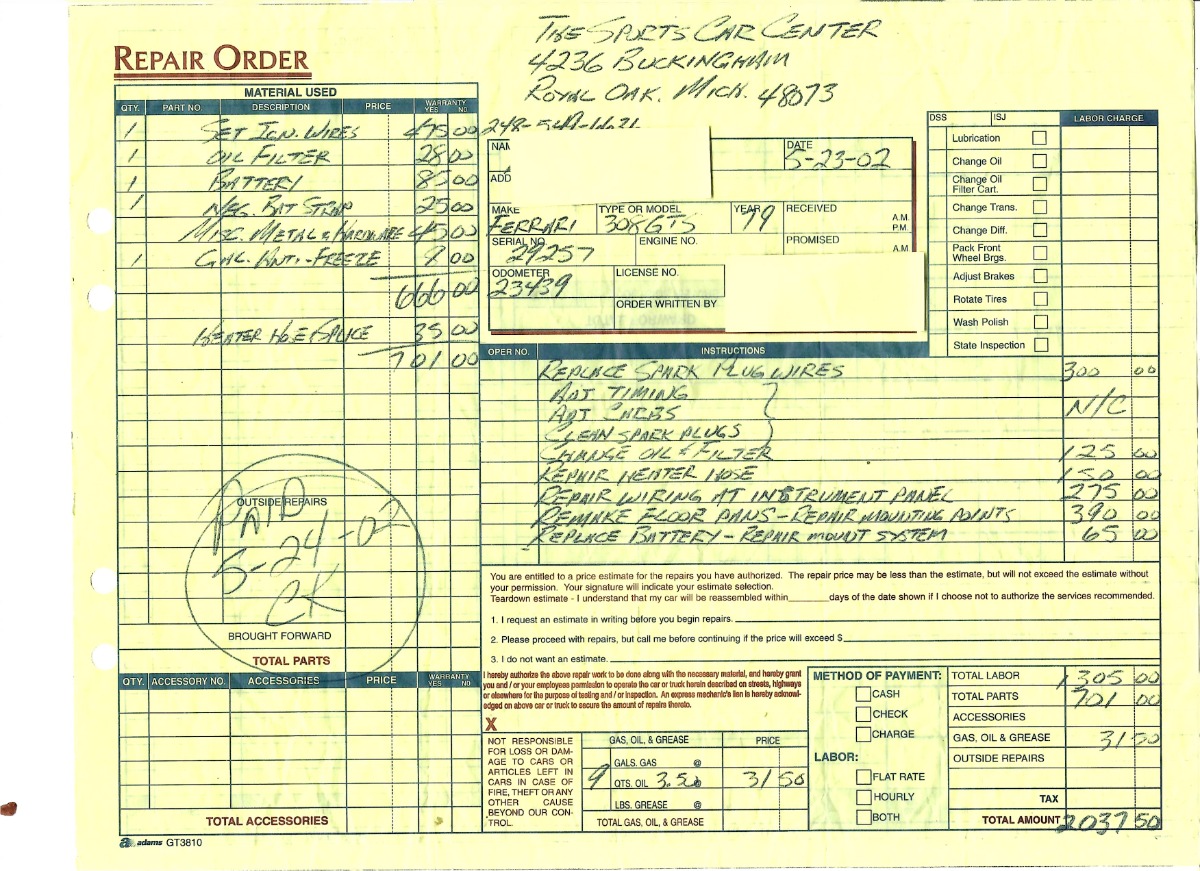 THE SPORTS CAR CENTER
4236 BUCKINGHAM
ROYAL OAK. MICH. 48073
REPAIR ORDER
MATERIAL USED
QTY. PART NO. DESCRIPTION PRICE WARRANTY YES NO
1 SET IGN. WIRES 475 00
1 OIL FILTER 28 00
1 BATTERY 85 00
1 NEG. BAT STRAP 25 00
MISC. METAL & HARDWARE 45 00
1 GAL. ANTI-FREEZE 8 00
666 00
HEATER HOSE SPLICE 35 00
701 00
OUTSIDE REPAIRS
PAID
5-24-02
CK
BROUGHT FORWARD
TOTAL PARTS
QTY. ACCESSORY NO. ACCESSORIES PRICE WARRANTY YES NO
TOTAL ACCESSORIES
adams GT3810
248-
DATE
5-23-02
ADD
MAKE
FERRARI
TYPE OR MODEL
308GTS
YEAR
79
RECEIVED
A.M.
P.M.
SERIAL NO.
29257
ENGINE NO.
PROMISED
A.M
ODOMETER
23439
LICENSE NO.
ORDER WRITTEN BY
DSS ISJ LABOR CHARGE
Lubrication
Change Oil
Change Oil
Filter Cart.
Change Trans.
Change Diff.
Pack Front
Wheel Brgs.
Adjust Brakes
Rotate Tires
Wash Polish
State Inspection
OPER NO. INSTRUCTIONS
REPLACE SPARK PLUG WIRES 300 00
ADJ TIMING
ADJ CARBS N/C
CLEAN SPARK PLUGS
CHANGE OIL & FILTER 125 00
REPAIR HEATER HOSE 150 00
REPAIR WIRING AT INSTRUMENT PANEL 275 00
REMAKE FLOOR PANS - REPAIR MOUNTING POINTS 390 00
REPLACE BATTERY - REPAIR MOUNT SYSTEM 65 00
You are entitled to a price estimate for the repairs you have authorized. The repair price may be less than the estimate, but will not exceed the estimate without
your permission. Your signature will indicate your estimate selection.
Teardown estimate - I understand that my car will be reassembled within________days of the date shown if I choose not to authorize the services recommended.
1. I request an estimate in writing before you begin repairs.
2. Please proceed with repairs, but call me before continuing if the price will exceed $
3. I do not want an estimate.
I hereby authorize the above repair work to be done along with the necessary material, and hereby grant
you and / or your employees permission to operate the car or truck herein described on streets, highways
or elsewhere for the purpose of testing and / or inspection. An express mechanic's lien is hereby acknowl-
edged on above car or truck to secure the amount of repairs thereto.
X
NOT RESPONSIBLE
FOR LOSS OR DAM-
AGE TO CARS OR
ARTICLES LEFT IN
CARS IN CASE OF
FIRE, THEFT OR ANY
OTHER CAUSE
BEYOND OUR CON-
TROL.
GAS, OIL, & GREASE PRICE
GALS. GAS @
9 QTS. OIL 3.50 @ 31 50
LBS. GREASE @
TOTAL GAS, OIL, & GREASE
METHOD OF PAYMENT:
CASH
CHECK
CHARGE
LABOR:
FLAT RATE
HOURLY
BOTH
TOTAL LABOR 1305 00
TOTAL PARTS 701 00
ACCESSORIES
GAS, OIL & GREASE 31 50
OUTSIDE REPAIRS
TAX
TOTAL AMOUNT 2037 50